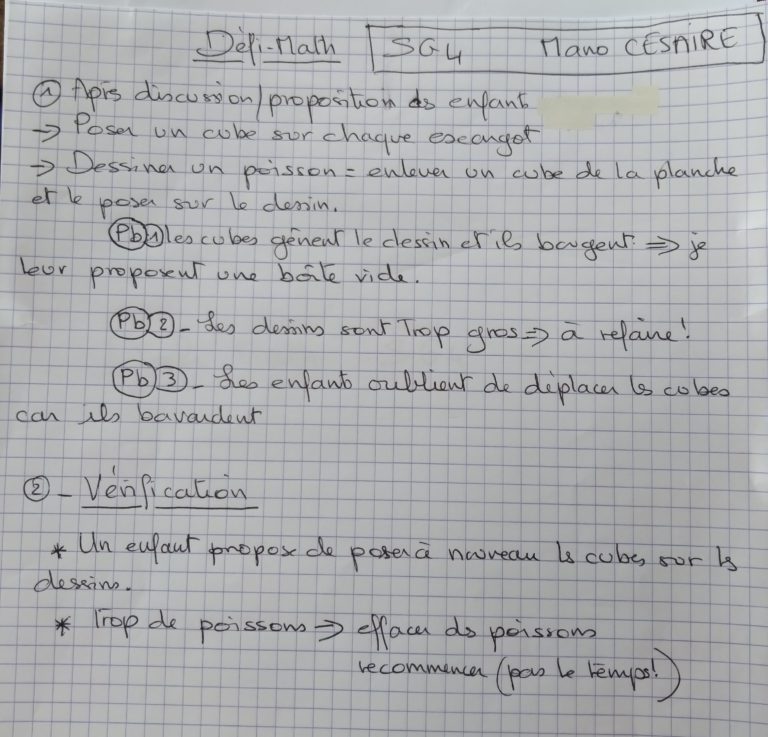 Défi-Math SG4 Mano CÉSAIRE
① Après discussion/proposition des enfant
→ Poser un cube sur chaque escargot
→ Dessiner un poisson = enlever un cube de la planche
et le poser sur le dessin.
Pb 1 les cubes gênent le dessin et ils bougent ⇒ je
leur proposent une boîte vide.
Pb 2 - Les dessins sont Trop gros ⇒ à refaire !
Pb 3 - Les enfant oublient de déplacer les cubes
car ils bavardent
② - Vérification
* Un enfant propose de poser à nouveau les cubes sur les
dessins.
* Trop de poissons ⇒ effacer des poissons
recommencer (pas le temps !)